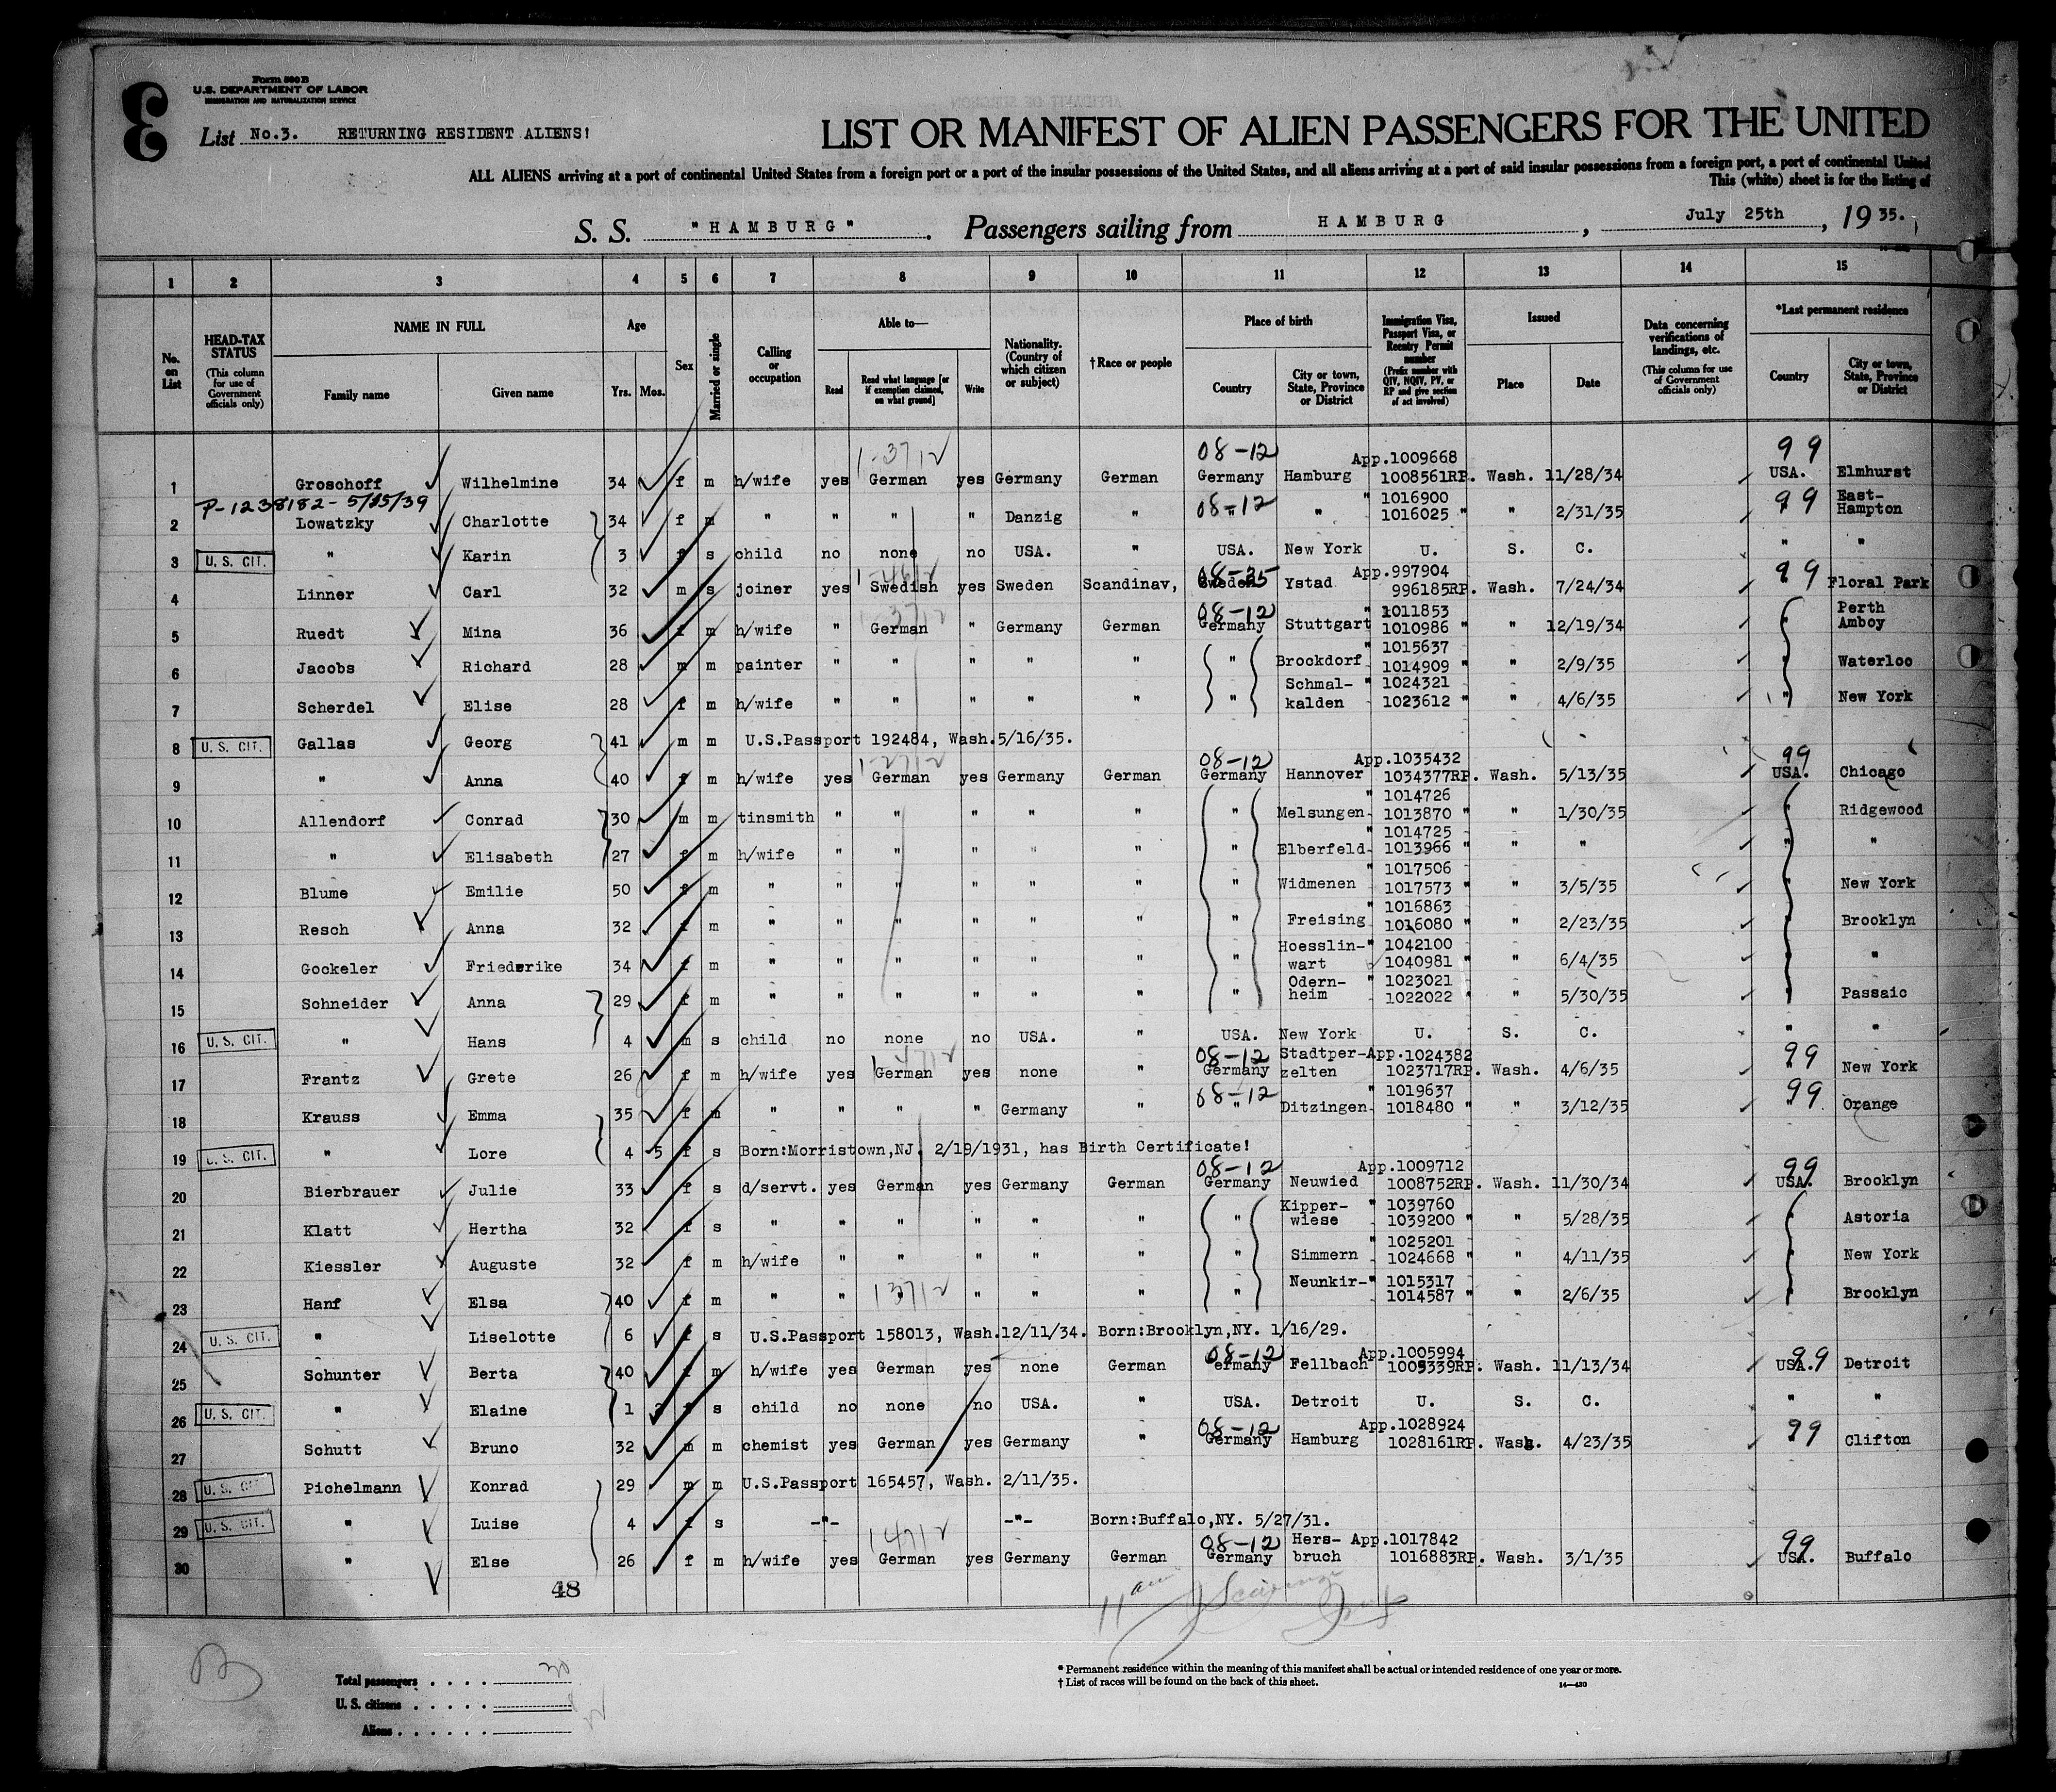 Form 500 B
U.S. DEPARTMENT OF LABOR
IMMIGRATION AND NATURALIZATION SERVICE
3
List No.3. RETURNING RESIDENT ALIENS!
LIST OR MANIFEST OF ALIEN PASSENGERS FOR THE UNITED
ALL ALIENS arriving at a port of continental United States from a foreign port or a port of the insular possessions of the United States, and all aliens arriving at a port of said insular possessions from a foreign port, a port of continental United
This (white) sheet is for the listing of
S. S. "HAMBURG". Passengers sailing from HAMBURG, July 25th, 1935.
1 2 3 4 5 6 7 8 9 10 11 12 13 14 15
No. on List
HEAD-TAX STATUS (This column for use of Government officials only)
NAME IN FULL Family name Given name
Age Yrs. Mos.
Sex
Married or single
Calling or occupation
Able to— Read Read what language [or if exemption claimed, on what ground] Write
Nationality. (Country of which citizen or subject)
†Race or people
Place of birth Country City or town, State, Province or District
Immigration Visa, Passport Visa, or Reentry Permit number (Prefix number with QIV, NQIV, PV, or RP and give section of act involved)
Issued Place Date
Data concerning verifications of landings, etc. (This column for use of Government officials only)
*Last permanent residence Country City or town, State, Province or District
08-12 App.1009668 99
1 Groschoff Wilhelmine 34 f m h/wife yes German yes Germany German Germany Hamburg 1008561RP. Wash. 11/28/34 USA. Elmhurst
P-1238182-5/15/39 08-12 " 1016900 99 East-
2 Lowatzky Charlotte 34 f m " " " " Danzig " " " 1016025 " " 2/31/35 " Hampton
3 U. S. CIT. " Karin 3 f s child no none no USA. " USA. New York U. S. C. " "
08-35 App.997904 99
4 Linner Carl 32 m s joiner yes Swedish yes Sweden Scandinav, Sweden Ystad 996185RP. Wash. 7/24/34 Floral Park
08-12 " 1011853 Perth
5 Ruedt Mina 36 f m h/wife " German " Germany German Germany Stuttgart 1010986 " " 12/19/34 Amboy
" 1015637
6 Jacobs Richard 28 m m painter " " " " " " Brockdorf 1014909 " " 2/9/35 " Waterloo
Schmal- " 1024321
7 Scherdel Elise 28 f m h/wife " " " " " " kalden 1023612 " " 4/6/35 " New York
8 U. S. CIT. Gallas Georg 41 m m U.S.Passport 192484, Wash.5/16/35.
08-12 App.1035432 99
9 " Anna 40 f m h/wife yes German yes Germany German Germany Hannover 1034377RP. Wash. 5/13/35 USA. Chicago
" 1014726
10 Allendorf Conrad 30 m m tinsmith " " " " " " Melsungen 1013870 " " 1/30/35 " Ridgewood
" 1014725
11 " Elisabeth 27 f m h/wife " " " " " " Elberfeld 1013966 " " " " "
" 1017506
12 Blume Emilie 50 f m " " " " " " " Widmenen 1017573 " " 3/5/35 " New York
" 1016863
13 Resch Anna 32 f m " " " " " " " Freising 1016080 " " 2/23/35 " Brooklyn
Hoesslin- " 1042100
14 Gockeler Friederike 34 f m " " " " " " " wart 1040981 " " 6/4/35 " "
Odern- " 1023021
15 Schneider Anna 29 f m " " " " " " " heim 1022022 " " 5/30/35 " Passaic
16 U. S. CIT. " Hans 4 m s child no none no USA. " USA. New York U. S. C. " "
08-12 Stadtper- App.1024382 99
17 Frantz Grete 26 f m h/wife yes German yes none " Germany zelten 1023717RP. Wash. 4/6/35 New York
08-12 " 1019637 99
18 Krauss Emma 35 f m " " " " Germany " " Ditzingen 1018480 " " 3/12/35 " Orange
19 U. S. CIT. " Lore 4 5 f s Born:Morristown,NJ. 2/19/1931, has Birth Certificate!
08-12 App.1009712 99
20 Bierbrauer Julie 33 f s d/servt. yes German yes Germany German Germany Neuwied 1008752RP. Wash. 11/30/34 USA. Brooklyn
Kipper- " 1039760
21 Klatt Hertha 32 f s " " " " " " " wiese 1039200 " " 5/28/35 " Astoria
" 1025201
22 Kiessler Auguste 32 f m h/wife " " " " " " Simmern 1024668 " " 4/11/35 " New York
Neunkir- " 1015317
23 Hanf Elsa 40 f m " " " " " " " 1014587 " " 2/6/35 " Brooklyn
24 U. S. CIT. " Liselotte 6 f s U.S.Passport 158013, Wash.12/11/34. Born:Brooklyn,NY. 1/16/29.
08-12 App.1005994 99
25 Schunter Berta 40 f m h/wife yes German yes none German Germany Fellbach 1005339RP. Wash. 11/13/34 USA. Detroit
26 U. S. CIT. " Elaine 1 f s child no none no USA. " USA. Detroit U. S. C. " "
08-12 App.1028924 99
27 Schutt Bruno 32 m m chemist yes German yes Germany " Germany Hamburg 1028161RP. Wash. 4/23/35 Clifton
28 U. S. CIT. Pichelmann Konrad 29 m m U.S.Passport 165457, Wash. 2/11/35.
29 U. S. CIT. " Luise 4 f s -"- -"- Born:Buffalo,NY. 5/27/31.
08-12 Hers- App.1017842 99
30 " Else 26 f m h/wife yes German yes Germany German Germany bruch 1016883RP. Wash. 3/1/35 USA. Buffalo
48
Total passengers 30
U. S. citizens
Aliens
* Permanent residence within the meaning of this manifest shall be actual or intended residence of one year or more.
† List of races will be found on the back of this sheet.
14—430